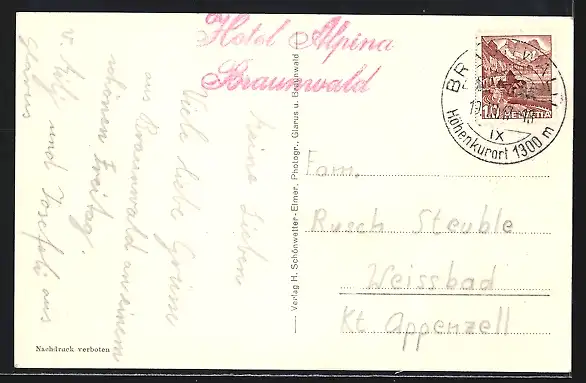 Hotel Alpina
Braunwald
Meine Lieben
Viele liebe Grüsse
aus Braunwald an einem
schönen Freitag.
v. und Josefili aus
Glarus
Nachdruck verboten
Verlag H. Schönwetter-Elmer, Photogr., Glarus u. Braunwald
HELVETIA
IX
Höhenkurort 1300 m
Fam.
Rusch Steuble
Weissbad
Kt Appenzell